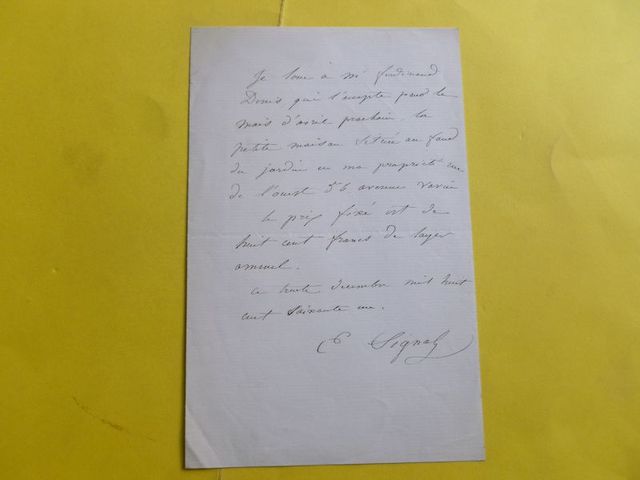 Je loue à Mr ferdinand
Denis qui l'accepte pour le
mois d'avril prochain, la
petite maison située au fond
du jardin en ma propriété rue
de l'ouest 56 avenue
le prix fixé est de
huit cent francs de loyer
annuel.
ce trente décembre mil huit
cent soixante un.